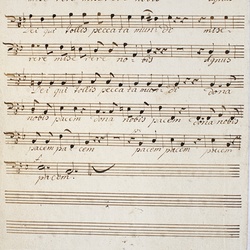 Dei qui tollis peccata mundi mise-
rere miserere nobis agnus
Dei qui tollis peccata mundi dona
nobis pacem dona nobis pacem dona nobis
pacem pacem pacem pacem pacem
pacem.